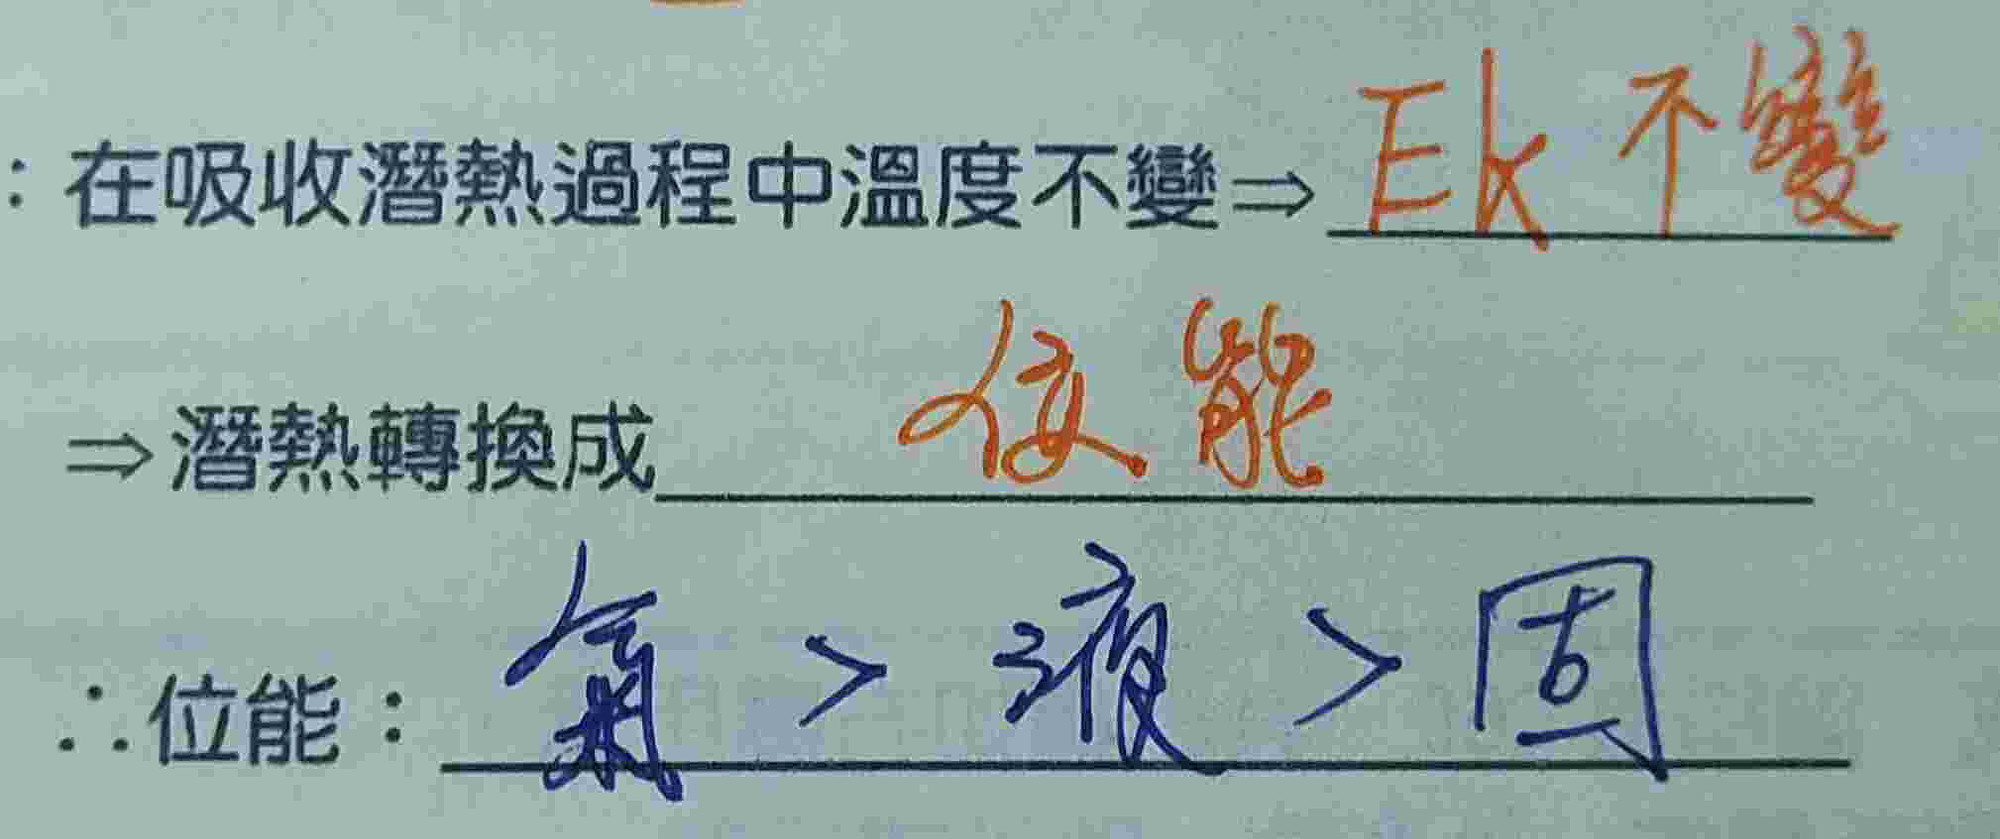 ：在吸收潛熱過程中溫度不變⇒Ek不變
⇒潛熱轉換成位能
∴位能：氣>液>固